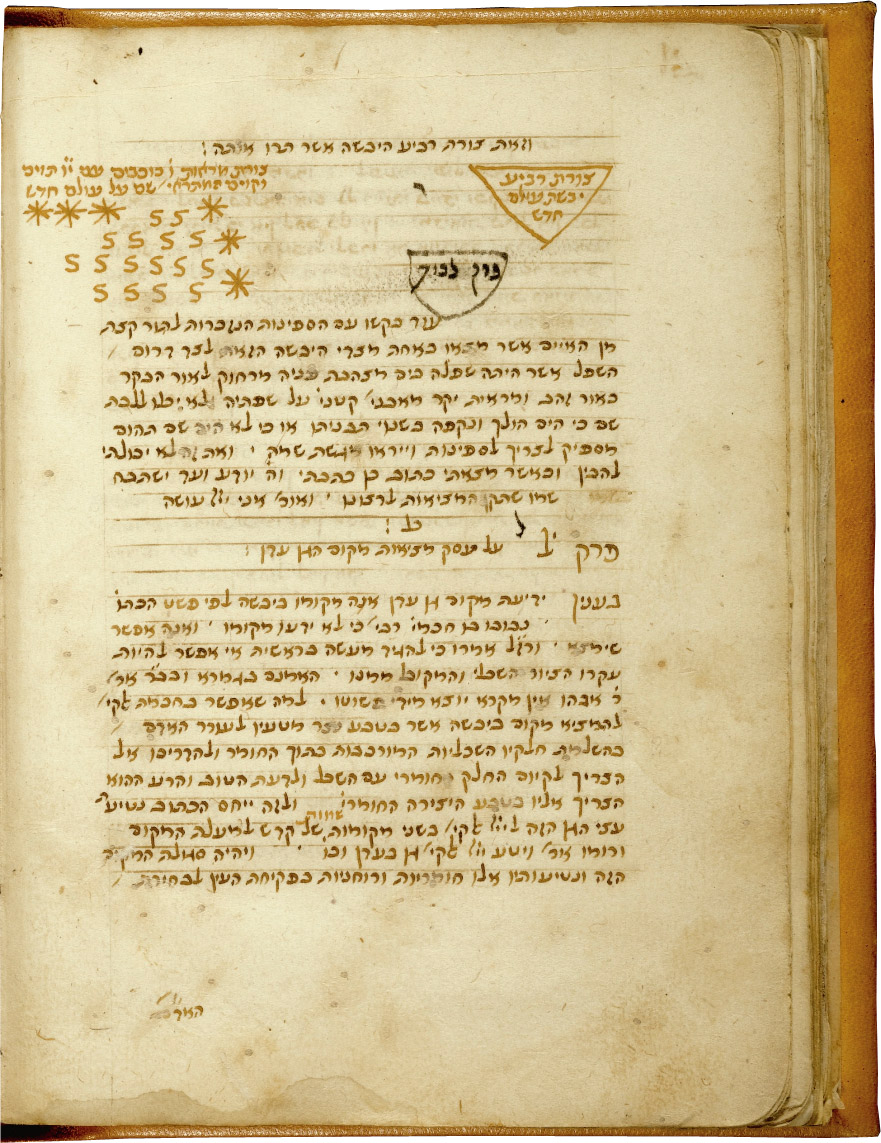 וזאת צורת רביע היבשה אשר תרו אותה
צורת רביע
יבשת עולם
חדש
צורת מראות ו׳ כוכבים עם
שם על עולם חדש
עוד בקשו עם הספינות הנזכרות לתור קצת
מן האיים אשר מצאו באחת מצדי היבשה הזאת לצד דרום
השפל אשר היתה שפלה כים מצהבת פניה מרחוק לאור הבקר
כאור זהב ומראית יקר מאבני׳ קטני׳ על שפתיה ולא יכלו ללכת
שם כי הים הולך ונקפה בשנוי תבניתו או כי לא היה שם תהום
מספיק לצריך לספינות וייראו מגשת שמה ואת זה לא יכולתי
להבין וכאשר מצאתי כתוב כן כתבתי וה׳ יודע ועד ישתבח
שמו שתקן המציאות לרצונו ואומ׳ אני ייי׳ עושה
כל
פרק על עסק מציאות מקום הגן עדן
בענין ידיעת מקום גן עדן אנה מקומו ביבשה לפי פשט הכתו׳
נבוכו בו חכמי׳ רבי׳ כי לא ידעו מקומו ואנה אפשר
שימצא ורז״ל אמרו כי להגיד מעשה בראשית אי אפשר להיות
עקרו הציור השכלי והמקובל ממנו האמנם בגמרא אמ׳
ר׳ אבהו אין מקרא יוצא מידי פשוטו למה שאפשר בחכמת אלקי׳
להמציא מקום ביבשה אשר בטבע עוזר מטעין לעורר האדם
בהשלמת חלקיו השכליות המורכבות בתוך החומר ולהדריכו אל
הצריך לקיום החלק החומרי עם השכל ולדעת הטוב והרע ההוא
הצריך אליו בטבע היצירה החומרי׳ ולזה ייחס הכתוב נטיע׳
עצי הגן הזה לייי׳ אלקי׳ בשני מקומות שמות של קדש למעלת המקום
ורומו אמ׳ ויטע ייי׳ אלקי׳ גן בעדן וכו׳ ויהיה סגולת המקום
הזה ונטיעותיו אלו חומריות ורוחניות בפקיחת העין לבחירת
האד׳